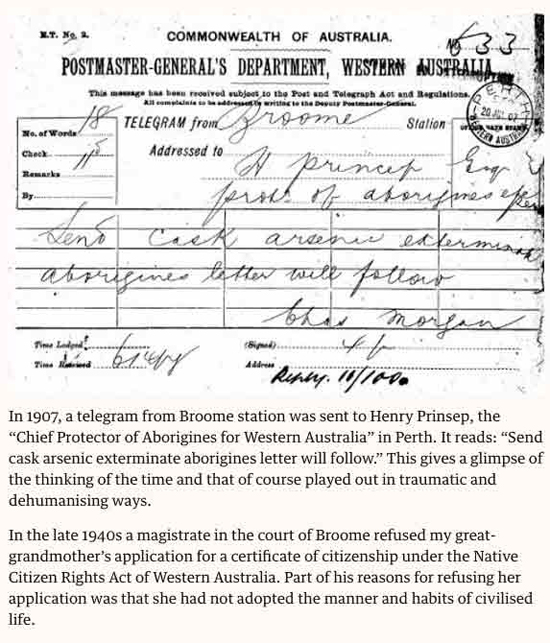 R.T. No. 2.
COMMONWEALTH OF AUSTRALIA.
No 633
POSTMASTER-GENERAL'S DEPARTMENT, WESTERN AUSTRALIA
This message has been received subject to the Post and Telegraph Act and Regulations.
All complaints to be addressed in writing to the Deputy Postmaster-General.
PERTH
WESTERN AUSTRALIA
No. of Words 18
TELEGRAM from Broome Station
Check
Addressed to H Princep Esq
Remarks
By
prot. of aborigines
Send cask arsenic exterminate
aborigines letter will follow
Chas Morgan
Time Lodged
(Signed)
Time Received
Address
In 1907, a telegram from Broome station was sent to Henry Prinsep, the
“Chief Protector of Aborigines for Western Australia” in Perth. It reads: “Send
cask arsenic exterminate aborigines letter will follow.” This gives a glimpse of
the thinking of the time and that of course played out in traumatic and
dehumanising ways.
In the late 1940s a magistrate in the court of Broome refused my great-
grandmother’s application for a certificate of citizenship under the Native
Citizen Rights Act of Western Australia. Part of his reasons for refusing her
application was that she had not adopted the manner and habits of civilised
life.